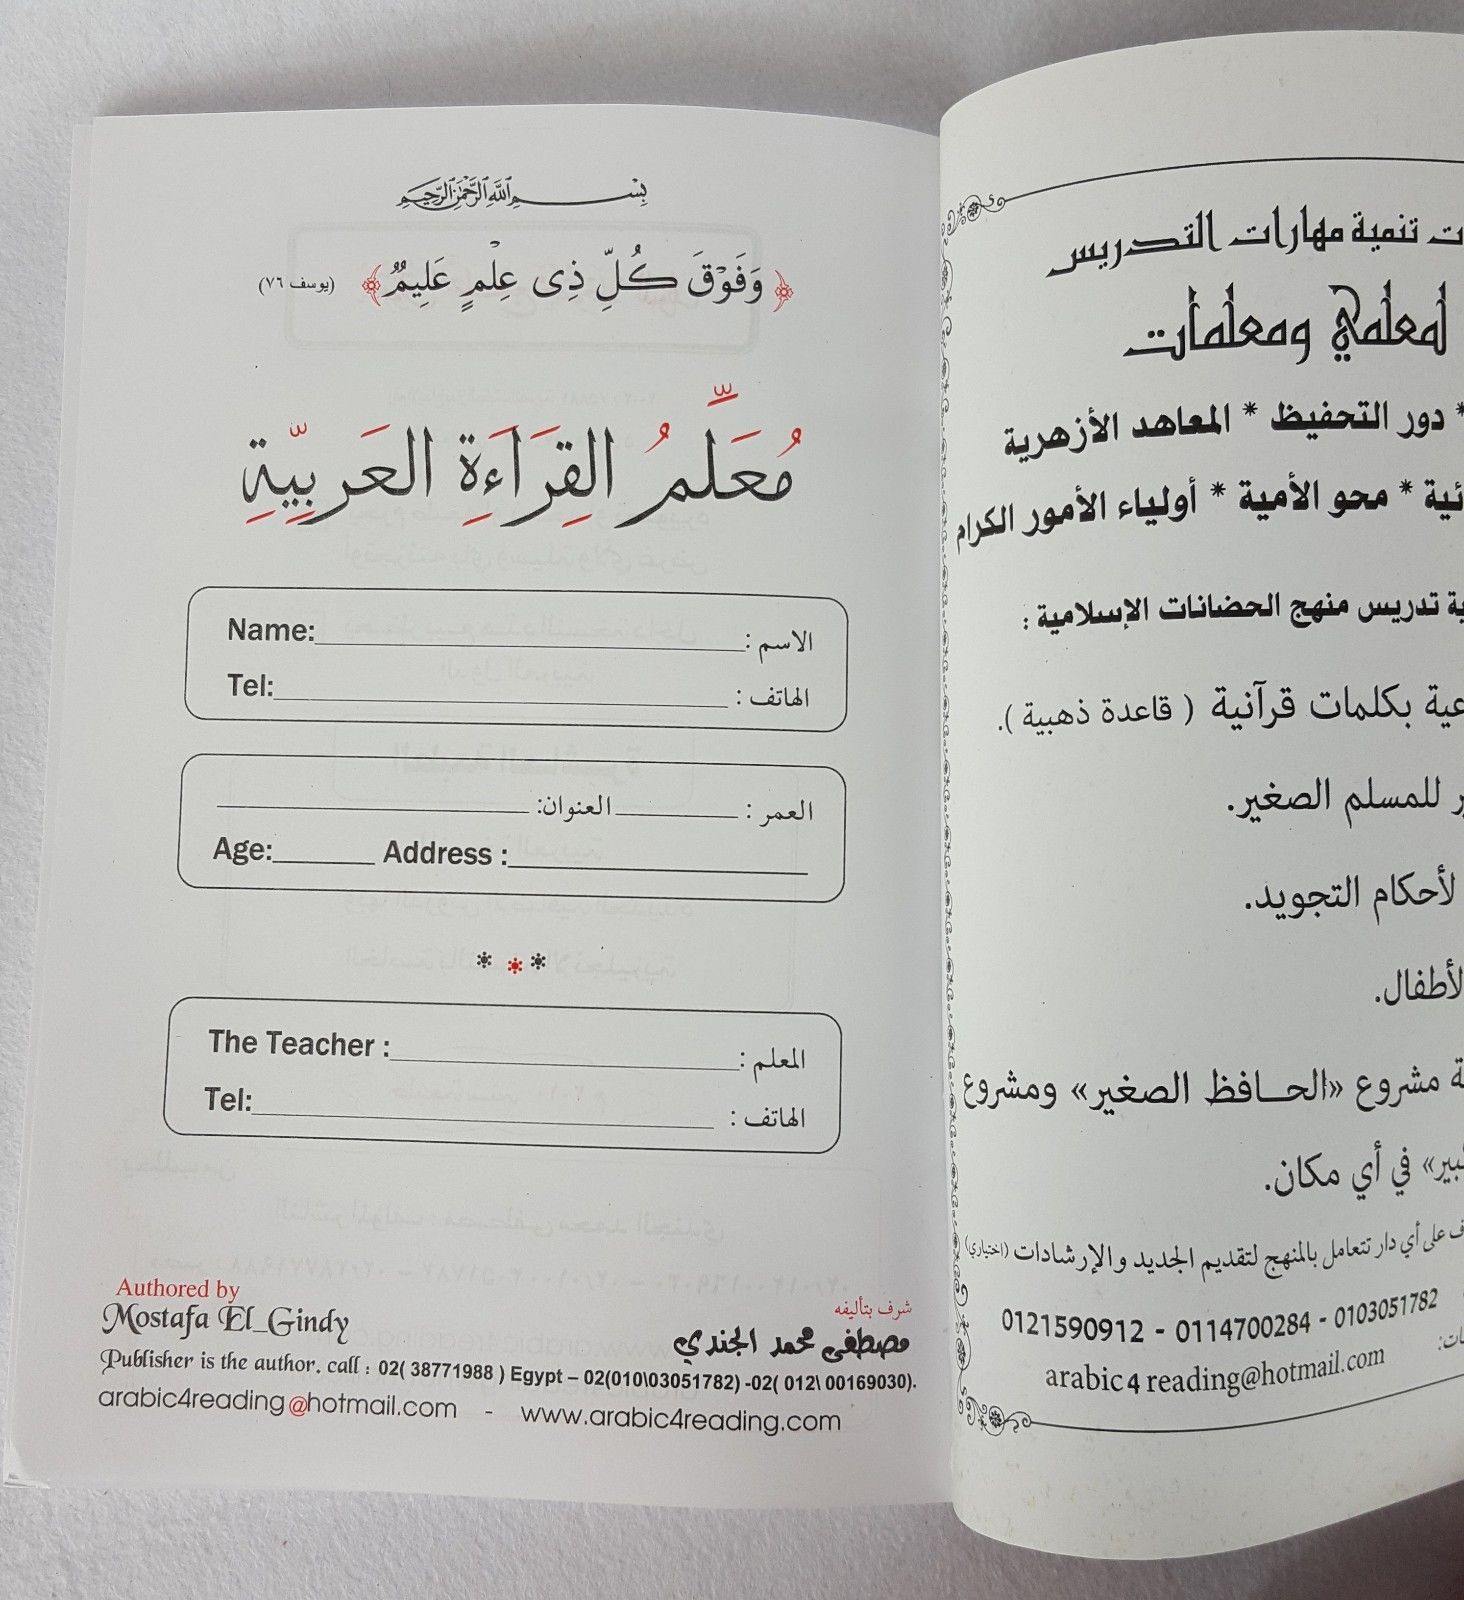 بِسْمِ اللَّهِ الرَّحْمَٰنِ الرَّحِيمِ
﴿ وَفَوْقَ كُلِّ ذِى عِلْمٍ عَلِيمٌ ﴾ (يوسف ٧٦)
مُعَلِّمُ القِرَاءَةِ العَرَبِيّةِ
Name: الاسم :
Tel: الهاتف :
العمر : العنوان:
Age: Address :
The Teacher : المعلم :
Tel: الهاتف :
Authored by
Mostafa El_Gindy
شرف بتأليفه
مصطفى محمد الجندي
Publisher is the author. call : 02( 38771988 ) Egypt – 02(010\03051782) -02( 012\ 00169030).
arabic4reading@hotmail.com - www.arabic4reading.com
تنمية مهارات التدريس
لمعلمي ومعلمات
* دور التحفيظ * المعاهد الأزهرية
* محو الأمية * أولياء الأمور الكرام
تدريس منهج الحضانات الإسلامية :
بكلمات قرآنية ( قاعدة ذهبية ).
للمسلم الصغير.
لأحكام التجويد.
لأطفال.
مشروع «الحافظ الصغير» ومشروع
في أي مكان.
على أي دار تتعامل بالمنهج لتقديم الجديد والإرشادات (اختياري)
0121590912 - 0114700284 - 0103051782
arabic4reading@hotmail.com